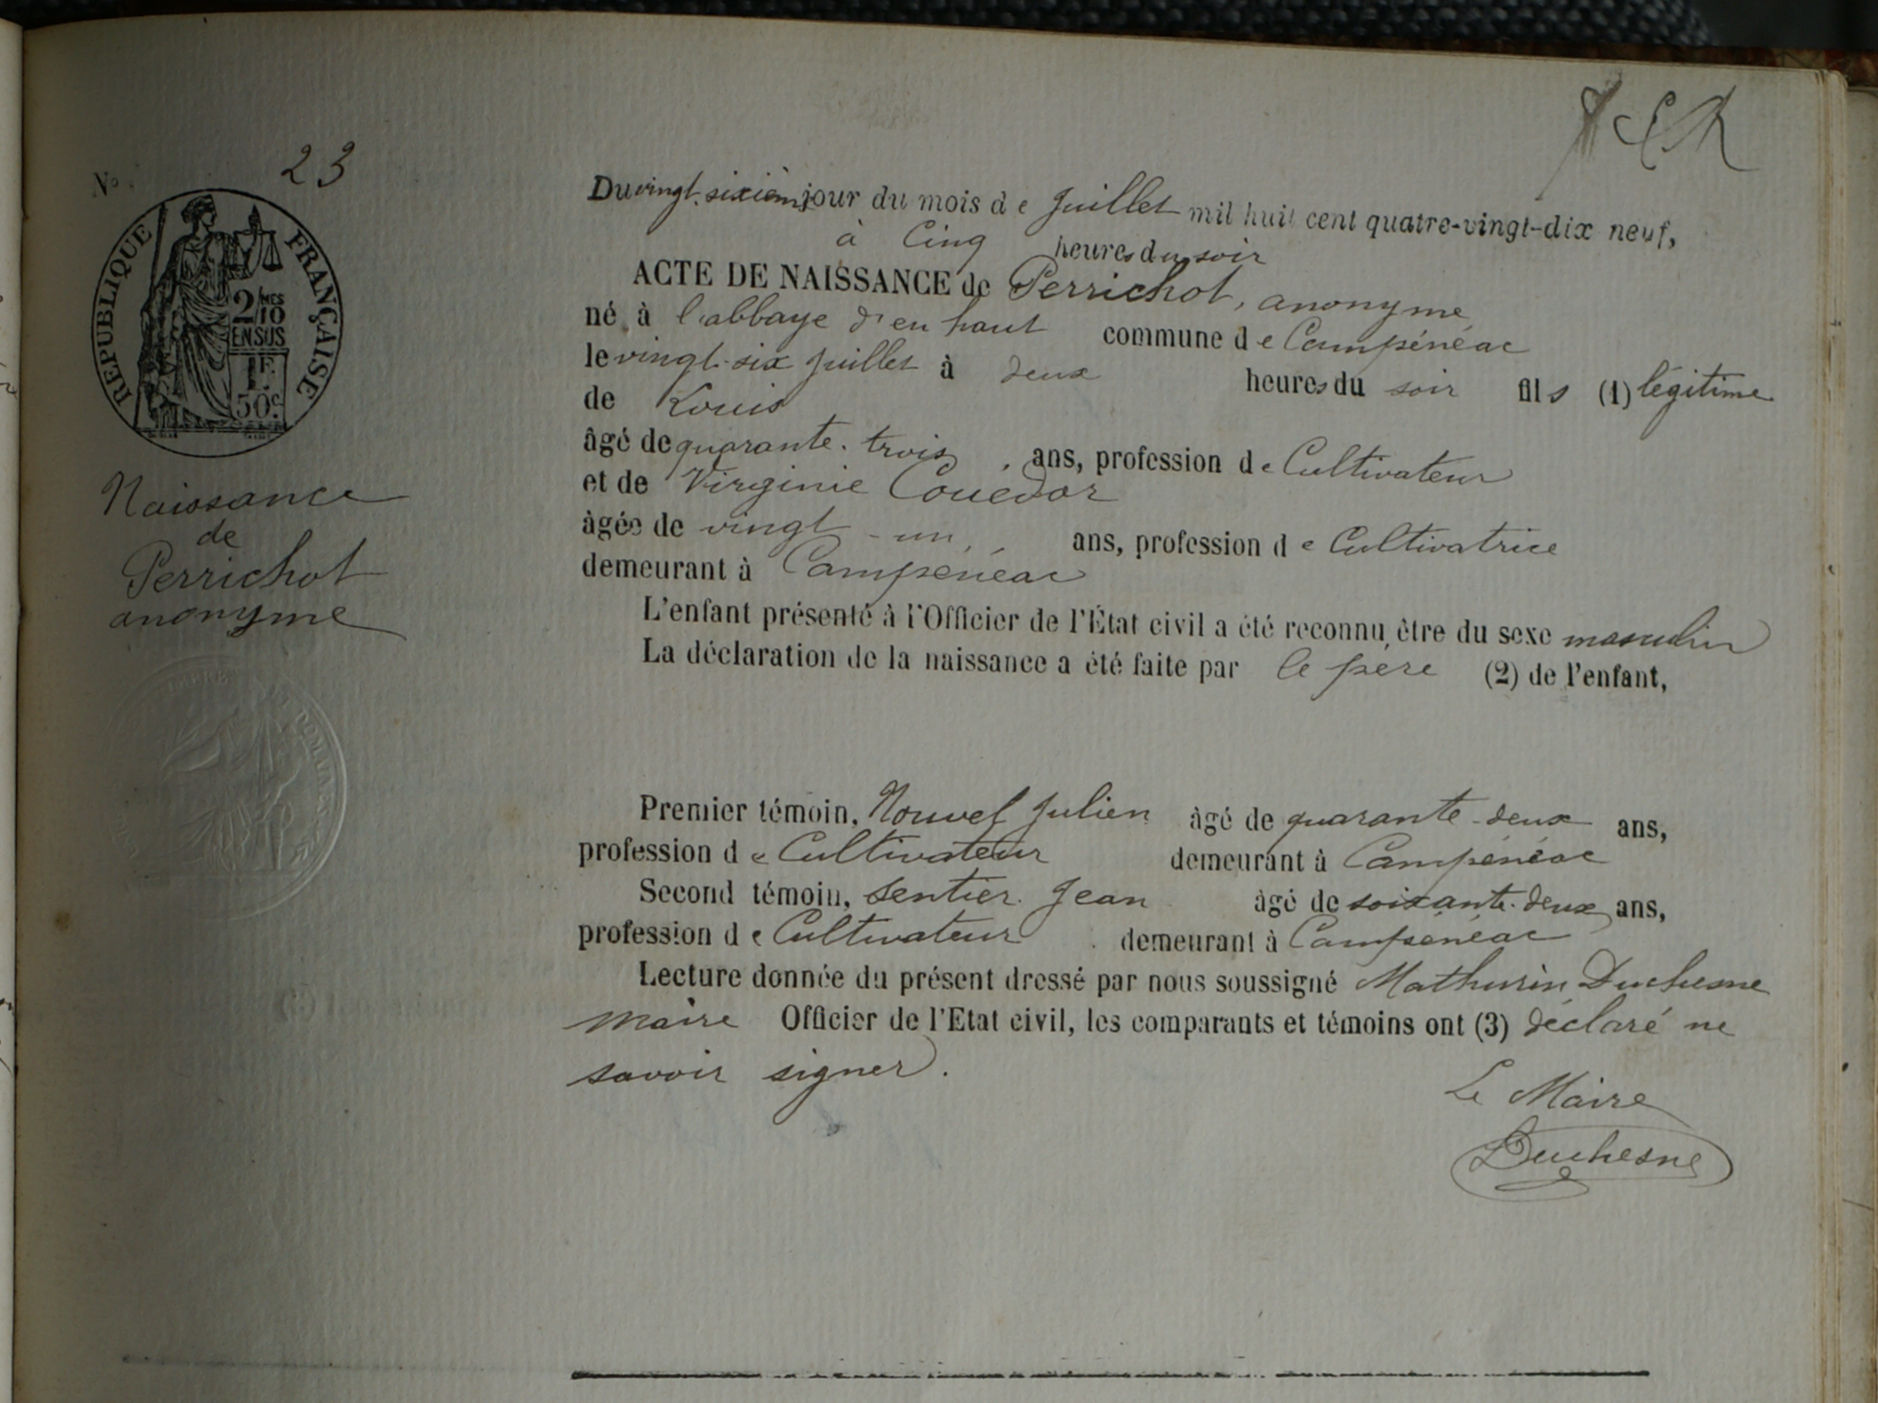 N° 23
RÉPUBLIQUE FRANÇAISE
2/10 MES
EN SUS
1F
50c
Naissance
de
Perrichot
anonyme
Du vingt-sixième jour du mois de Juillet mil huit cent quatre-vingt-dix neuf,
à Cinq heures du soir
ACTE DE NAISSANCE de Perrichot, anonyme
né à l'abbaye d'en haut commune de Campénéac
le vingt-six juillet à deux heures du soir fils (1) légitime
de Louis
âgé de quarante-trois ans, profession de Cultivateur
et de Virginie Couedor
âgée de vingt-un, ans, profession de Cultivatrice
demeurant à Campénéac
L'enfant présenté à l'Officier de l'État civil a été reconnu être du sexe masculin
La déclaration de la naissance a été faite par le père (2) de l'enfant,
Premier témoin, Nouvel Julien âgé de quarante-deux ans,
profession de Cultivateur demeurant à Campénéac
Second témoin, Sentier Jean âgé de soixante-deux ans,
profession de Cultivateur demeurant à Campénéac
Lecture donnée du présent dressé par nous soussigné Mathurin Duchesne
Maire Officier de l'Etat civil, les comparants et témoins ont (3) déclaré ne
savoir signer.
Le Maire
Duchesne